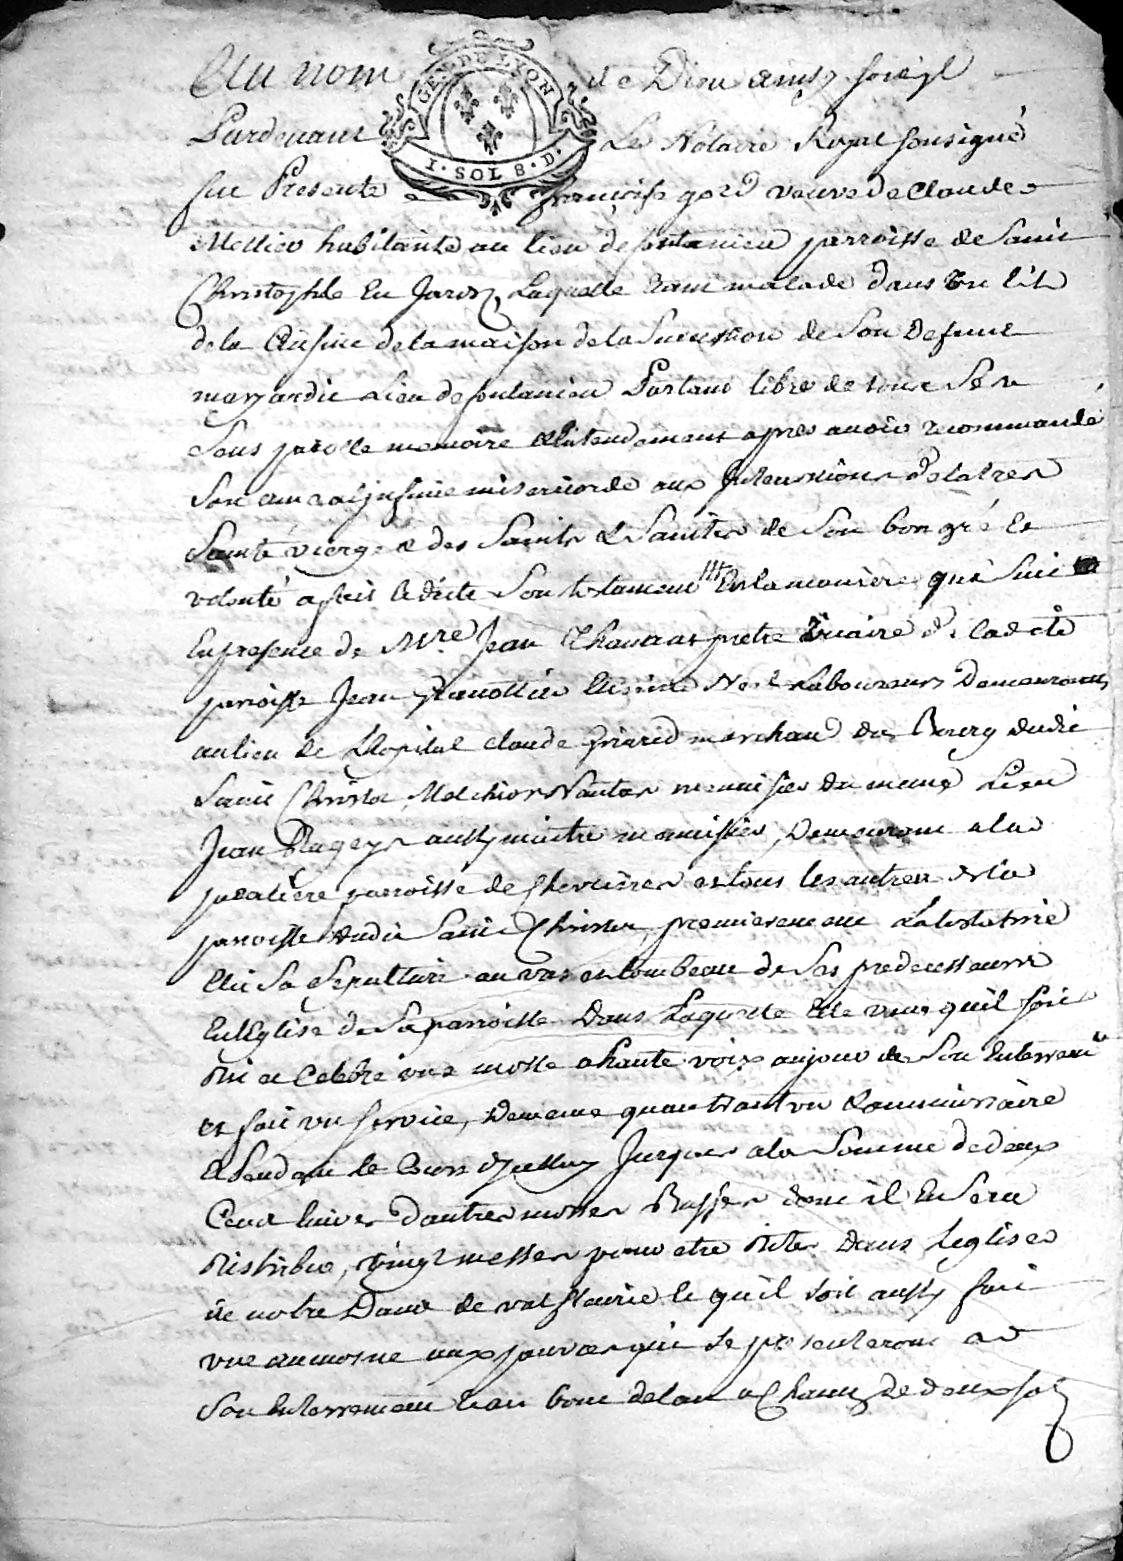 Au nom de Dieu ainsy soit il
GEN. DE LYON
1. SOL 8. D.
Pardevant Le Notaire Royal soussigné
fut Presente françoise veuve de Claude
Mellier habitante au lieu de fontanieu parroisse de Saint
Christophle En Jarez, Laquelle Etant malade dans un lit
de la Cuisine de la maison de la Succession de Son Defunt
mary audit Lieu de fontanieu Partant libre de tous Ses
Sens parolle memoire & Entendement apres avoir recommandé
Son ame a l'infinie misericorde aux Intercessions de la tres
Sainte vierge & des Saints & Saintes de Son bon gré et
volonté a fait & dicté Son testament En la maniere qui Suit
En presence de Mre. Jean pretre vicaire de lad. e
parroisse Jean Etienne Laboureurs Demeurants
au lieu de L'hopital Claude marchand du Bourg dudit
Saint Christo Melchior menuisier du meme Lieu
Jean Mageyr aussy maitre menuisier, Demeurant a la
parroisse de Chevrieres et tous les autres de la
parroisse dudit Saint Christo, premierement La testatrice
Elit Sa Sepulture au vas et tombeau de Ses predecesseurs
En L'Eglise de Sa parroisse Dans Laquelle Elle veut qu'il soit
Dit et Celebré une messe a haute voix au jour de Son Enterrement
et fait un service, De meme quau trantun & anniversaire
& Pendant le Cours Jusques a la Somme de deux
Cent livres d'autres messes Basses dont il En Sera
Distribué, vingt messes pour etre Dites Dans L'eglise
de notre Dame de valfleurie & qu'il soit aussy fait
une aumosne aux pauvres qui Se presenteront a
Son Enterrement & au bout de lan a Chacun de deux sols